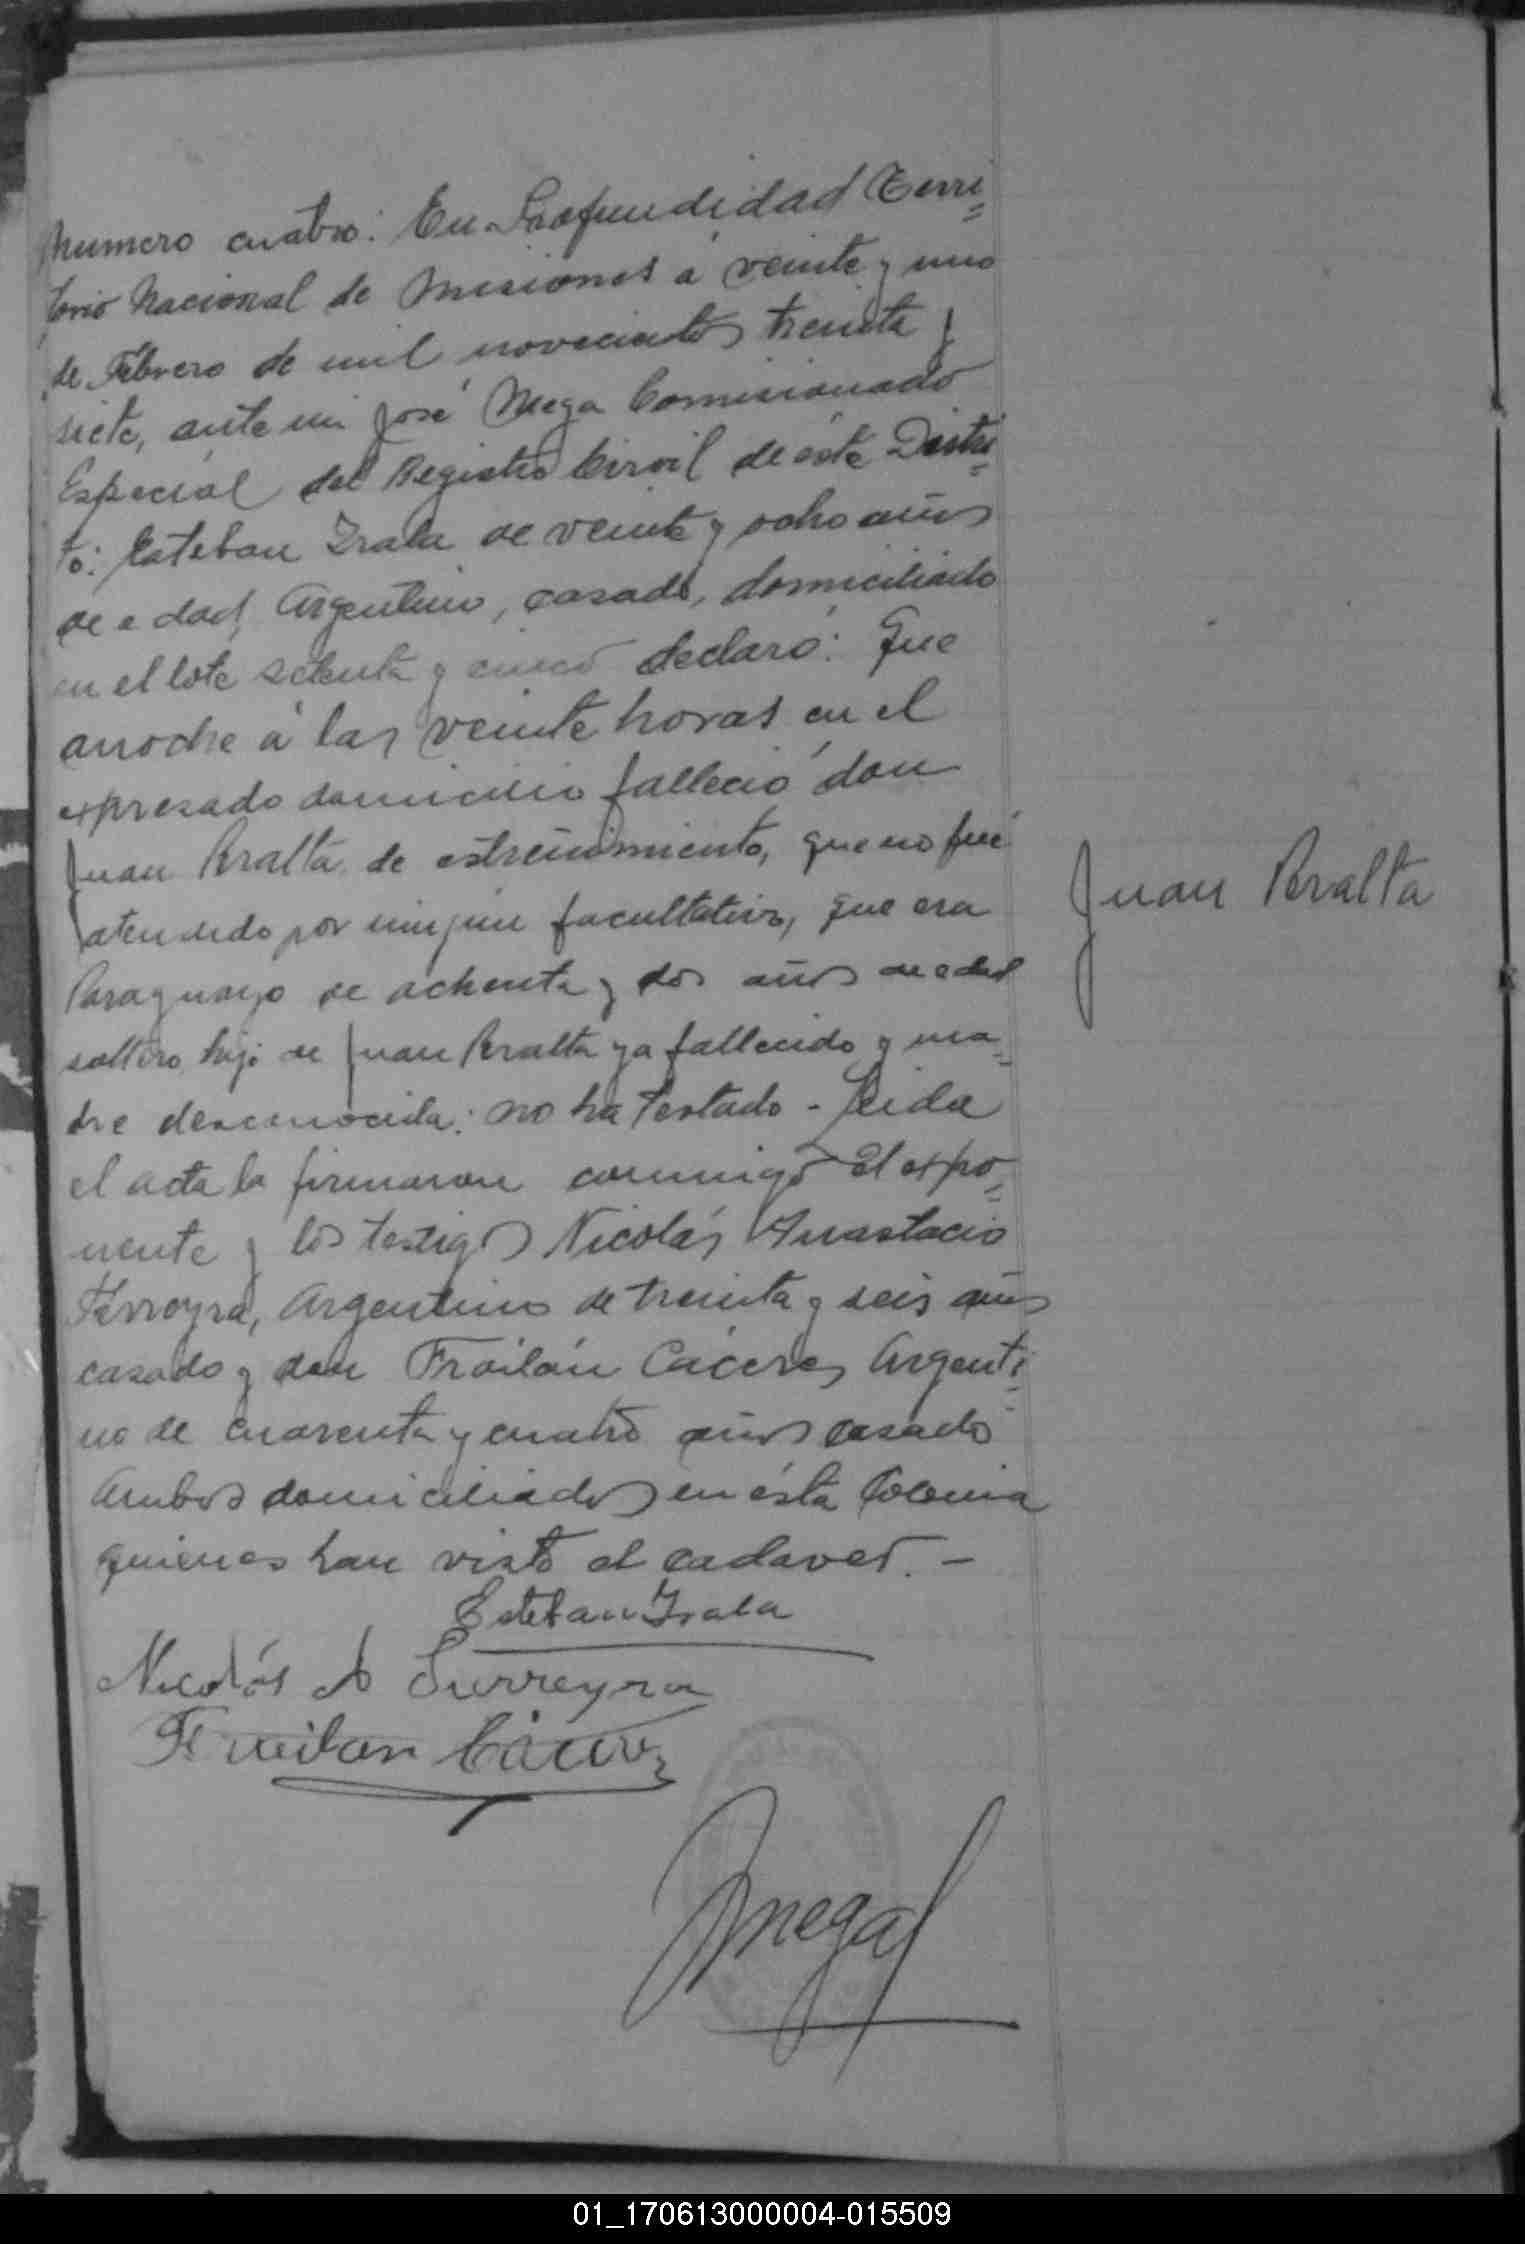 Numero cuatro: En Profundidad Terri=
torio Nacional de Misiones á veinte y uno
de Febrero de mil novecientos treinta y
siete, ante mi José Mega Comisionado
Especial del Registro Civil de éste Distri=
to: Esteban Irala de veinte y ocho años
de edad, Argentino, casado, domiciliado
en el lote setenta y cinco declaró: Que
anoche á las veinte horas en el
expresado domicilio falleció don
Juan Peralta de estreñimiento, que no fué
atendido por ningun facultativo, que era
Paraguayo de ochenta y dos años de edad
soltero hijo de Juan Peralta ya fallecido y ma=
dre desconocida: no ha testado - Leida
el acta la firmaron conmigo el expo=
nente y los testigos Nicolás Anastacio
Ferreyra, Argentino de treinta y seis años
casado y don Froilán Cáceres Argenti=
no de cuarenta y cuatro años casado
Ambos domiciliados en ésta Colonia
quienes han visto el cadaver. -
Juan Peralta
Esteban Irala
Nicolás A Ferreyra
Froilan Cáceres
Mega
01_170613000004-015509